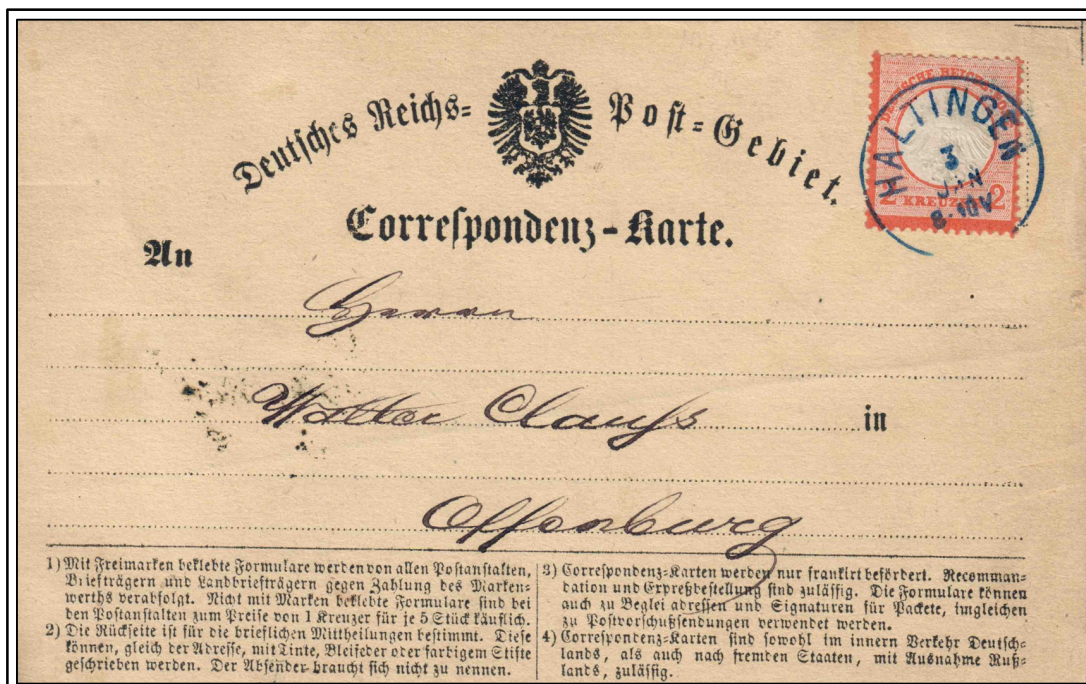 Deutsches Reichs- Post-Gebiet.
Correspondenz-Karte.
DEUTSCHE REICHS-POST
2 KREUZER 2
HALTINGEN
3
JAN
8-10V
An
Herrn
Walter Clauss in
Offenburg
1) Mit Freimarken beklebte Formulare werden von allen Postanstalten,
Briefträgern und Landbriefträgern gegen Zahlung des Marken-
werths verabfolgt. Nicht mit Marken beklebte Formulare sind bei
den Postanstalten zum Preise von 1 Kreuzer für je 5 Stück käuflich.
2) Die Rückseite ist für die brieflichen Mittheilungen bestimmt. Diese
können, gleich der Adresse, mit Tinte, Bleifeder oder farbigem Stifte
geschrieben werden. Der Absender braucht sich nicht zu nennen.
3) Correspondenz-Karten werden nur frankirt befördert. Recomman-
dation und Expreßbestellung sind zulässig. Die Formulare können
auch zu Begleitadressen und Signaturen für Packete, imgleichen
zu Postvorschußsendungen verwendet werden.
4) Correspondenz-Karten sind sowohl im innern Verkehr Deutsch-
lands, als auch nach fremden Staaten, mit Ausnahme Ruß-
lands, zulässig.